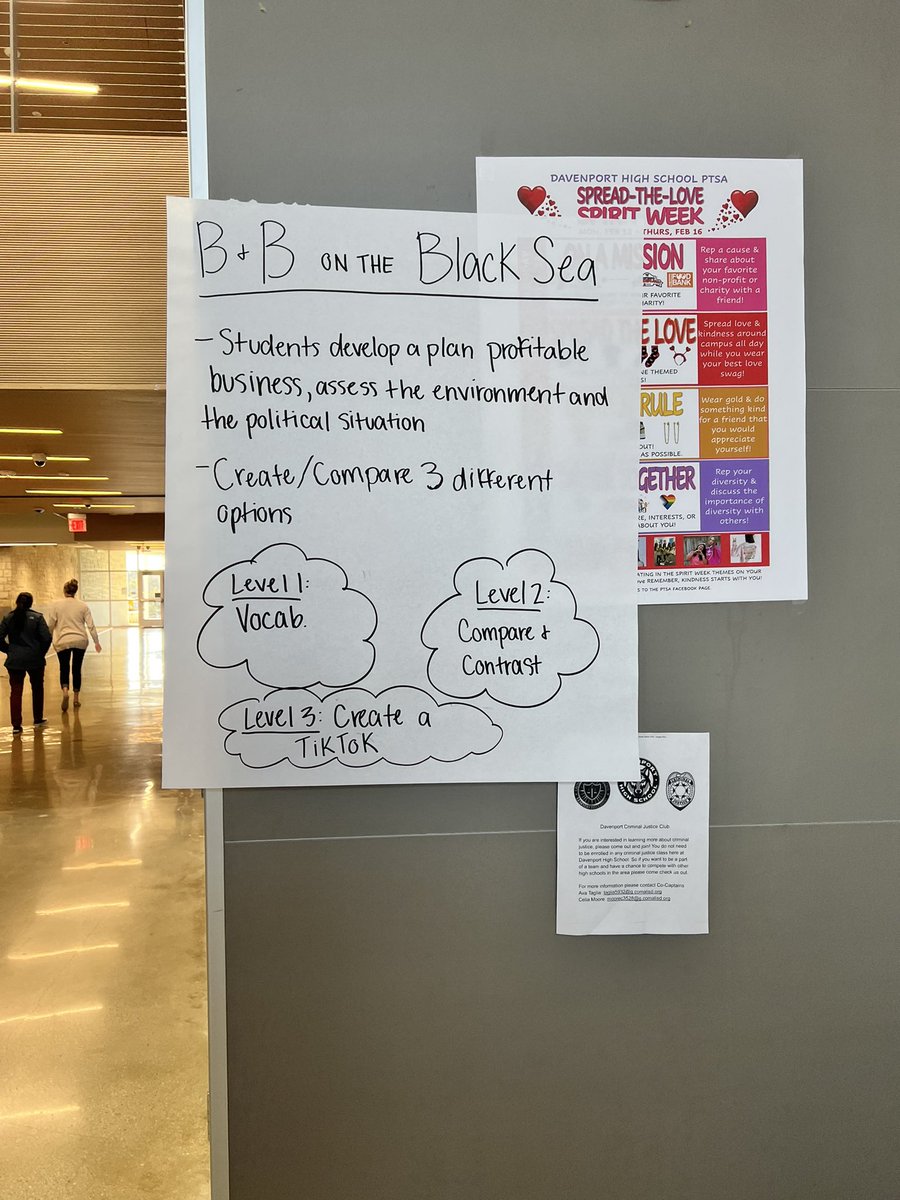 B + B ON THE Black Sea
- Students develop a plan profitable
business, assess the environment and
the political situation
- Create/Compare 3 different
options
Level 1:
Vocab.
Level 2:
Compare +
Contrast
Level 3: Create a
TikTok
DAVENPORT HIGH SCHOOL PTSA
SPREAD-THE-LOVE
SPIRIT WEEK
THURS, FEB 16
SION
FOOD
BANK
UR FAVORITE
HARITY!
Rep a cause &
share about
your favorite
non-profit or
charity with a
friend!
E LOVE
NE THEMED
Spread love &
kindness around
campus all day
while you wear
your best love
swag!
RULE
OUT!
AS POSSIBLE.
Wear gold & do
something kind
for a friend that
you would
appreciate
yourself!
GETHER
RE, INTERESTS, OR
ABOUT YOU!
Rep your
diversity &
discuss the
importance of
diversity with
others!
ATING IN THE SPIRIT WEEK THEMES ON YOUR
REMEMBER, KINDNESS STARTS WITH YOU!
S TO THE PTSA FACEBOOK PAGE.
HIGH SCHOOL
Davenport Criminal Justice Club
If you are interested in learning more about criminal
justice, please come out and join! You do not need
to be enrolled in any criminal justice class here at
Davenport High School. So if you want to be a part
of a team and have a chance to compete with other
high schools in the area please come check us out.
For more information please contact Co-Captains
Ava Taglia: taglia5932@g.comalisd.org
Celia Moore: moorec3528@g.comalisd.org
EXIT